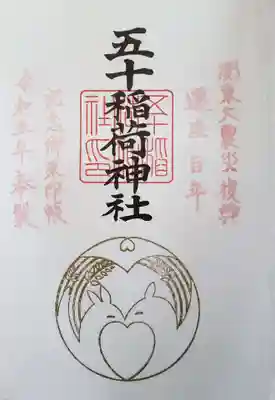 関東大震災復興
百年
五十稲荷神社
御朱印帳
令和五年奉製